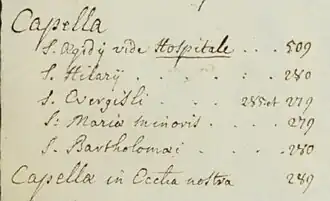 Capella
S. Ægidÿ vide Hospitale . . . 509
S. Hilarÿ . . . . : . 280
S. Evergisli . . . 285 et 279
S: Mariæ minoris . . 279
S. Bartholomæi . . . 280
Capella in Ecclia nostra 289